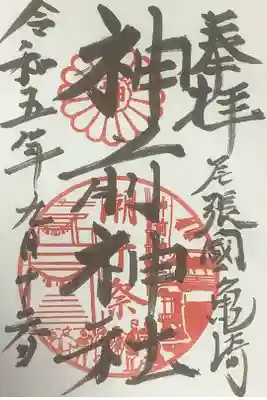 奉拝
尾張國亀崎
神前神社
潮干祭
令和五年九月十三日